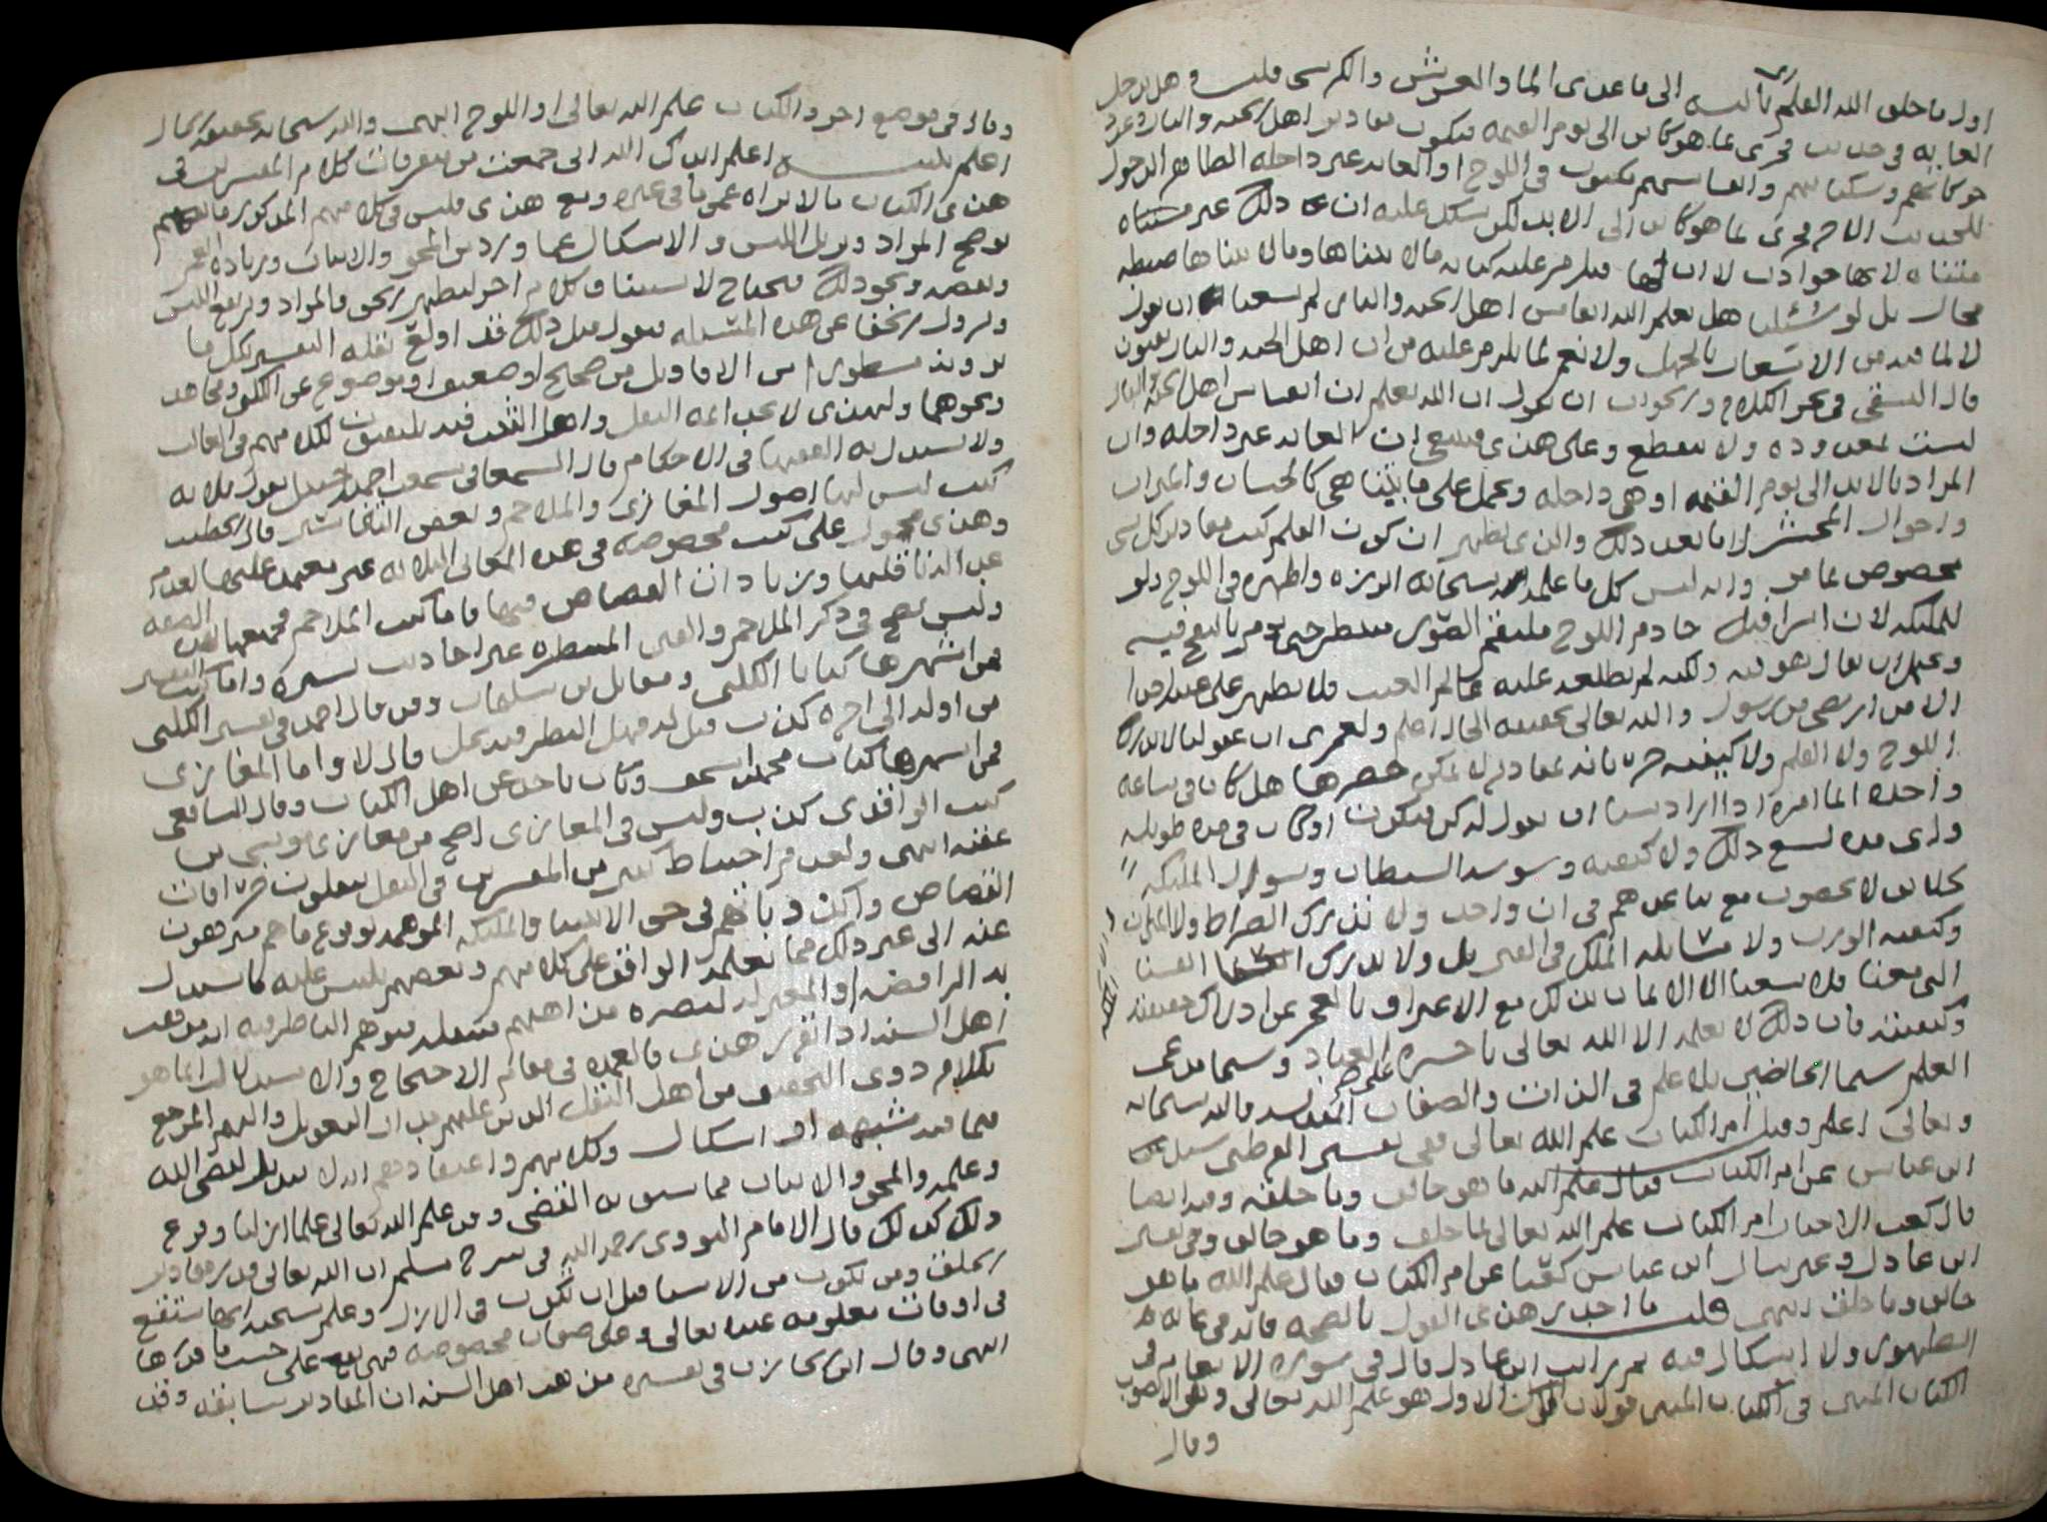 اول ما خلق الله القلم بالنسبه الى ما عدى الما والعرش والكرسي قلت وهل يدخل
الغايه في حديث فجرى بما هو كائن الى يوم القيمه فيكون مقادير اهل الجنه والنار وعدد
حركاتهم وسكناتهم وانفاسهم مكتوب في اللوح او الغايه غير داخله الظاهر الدخول
للحديث الاخر فجرى بما هو كائن الى الابد لكن يشكل عليه ان ذلك غير متناه
متناه لانها حوادث لا اب لها فيلزم عليه كتابة مالا يتناها ومالا يتناها ضبطه
محال بل لو سئلنا هل يعلم الله انفاس اهل الجنه والنار لم يسعنا ان نقول
لا لما فيه من الاشعار بالجهل ولا نعم لما يلزم عليه من ان اهل الجنه والنار يفنون
قال النسفي في بحر الكلام والجواب ان نقول ان الله يعلم ان انفاس اهل الجنه والنار
ليست بمعدوده ولا تنقطع وعلى هذى فينبغي ان الغايه غير داخله وان
المراد بالابد الى يوم القيمه او هي داخله ويحمل على ما يتناهى كالحساب والميزان
واحوال المحشر لا ما بعد ذلك والذى يظهر ان كون القلم كتب مقادير كل شى
مخصوص بما مر وانه ليس كل ما علمه سبحانه ابرزه واظهره في اللوح ولو
للملئكه لان اسرافيل خادم اللوح ملتقم الصور ينتظر حتى يومر بالنفخ فيه
ويحتمل ان يقال هو فيه ولكنه لم يطلعه عليه عالم الغيب فلا يظهر على غيبه احدا
الا من ارتضى من رسول والله تعالى بحقيقه الحال اعلم ولعمرى ان عقولنا لا تدرك
اللوح ولا القلم ولا كيفيه جريانه بمقادير لا يمكن حصرها هل كان في ساعه
واحده انما امره اذا اراد شيا ان يقول له كن فيكون او كان في مده طويله
واى مده تسع ذلك ولا كيفيه وسوسه الشيطان وسوال الملئكه
لخلائق لا يحصون مع تباعدهم في ان واحد ولا ندرك الصراط ولا الميزان
وكيفيه الوزن ولا مشابه الملك في القبر بل ولا ندرك انفسنا
التي معنا فلا يسعنا الا الايمان بذلك مع الاعتراف بالعجز عن ادراك حقيقته
وكيفيته فان ذلك لا يعلمه الا الله تعالى يا حسره على العباد وسيما مدعى
العلم سيما الخايضين بلا علم في الذات والصفات المقدسه فالله سبحانه
وتعالى اعلم وقيل ام الكتاب علم الله تعالى ففي تفسير القرطبي سئل
ابن عباس عن ام الكتاب فقال علم الله ما هو خالق وما خلقه وفيه ايضا
قال كعب الاحبار ام الكتاب علم الله تعالى بما خلق وما هو خالق وفي تفسير
ابن عادل وغيره سال ابن عباس كعبا عن ام الكتاب فقال علم الله ما هو
خالق وما خلق انتهى قلت ما اجدر هذى القول بالصحه فانه في غاية
الظهور ولا اشكال فيه ثم رايت ابن عادل قال في سورة الانعام في
الكتاب المبين في الكتاب المبين قولان الاول هو علم الله تعالى وهو الاصوب
وقال
وقال في موضع اخر والكتاب علم الله تعالى او اللوح انتهى والله سبحانه بحقيقة الحال
اعلم تنبيه اعلم ايدك الله انى جمعت من متفرقات كلام المفسرين في
هذى الكتاب ما لا تراه عمى ما في غيره ومع هذى فليس في كلامهم المذكور ما
يوضح المراد ويزيل اللبس والاشكال عما ورد من المحو والاثبات وزياده العمر
ونقصه ونحو ذلك فيحتاج لاستيناف كلام اخر ليظهر الحق والمراد ويرتفع اللبس
ويزول الخفا عن هذه المسئله فنقول قبل ذلك قد اولع نقله التفسير بكل ما
يرونه مسطورا من الاقاويل من صحيح او ضعيف او موضوع عن الكلبي ومجاهد
ونحوهما ولهذى لا يحب ايمه النقل واهل التثبت فيه يلتفتون لكلامهم في الغالب
ولا يستدل به الفقها في الاحكام قال السمعاني سمعت احمد بن حنبل يقول ثلاثه
كتب ليس لها اصول المغازى والملاحم وبعض التفاسير قال الخطيب
وهذى محمول على كتب مخصوصه في هذه المعاني الثلاثه غير معتمد عليها لعدم
عداله ناقليها وزيادات القصاص فيها فاما كتب الملاحم فجميعها بهذه الصفه
وليس يصح في ذكر الملاحم والفتن المنتظره غير احاديث يسيره واما كتب التفسير
فمن اشهرها كتابا الكلبي ومقاتل بن سليمان وقد قال احمد في تفسير الكلبي
من اوله الى اخره كذب قيل له فهل النظر فيه يحل قال لا واما المغازى
فمن اشهرها كتاب محمد بن اسحق وكان ياخذ عن اهل الكتاب وقال الشافعي
كتب الواقدى كذب وليس في المغازى اصح من مغازى موسى بن
عقبه انتهى ولعدم احتياط كثير من المفسرين في النقل ينقلون خرافات
القصاص واكذوباتهم في حق الانبيا والملئكه الموهمه لوقوع ما هم منزهون
عنه الى غير ذلك مما يعلمه الواقف على كلامهم وبعضهم يلتبس عليه ما استدل
به الرافضه او المعتزله لنصرة مذاهبهم فينقله فيوهم الناظر فيه انه من مذهب
اهل السنه اذا تقرر هذى فالعمده في مقام الاحتجاج والاستدلال انما هو
بكلام ذوى التحقيق من اهل النقل الذين عليهم مدار التعويل واليهم المرجع
فيما فيه شبهه او اشكال وكلامهم واعتقادهم انه لا تبديل لقضى الله
وعلمه والمحو والاثبات مما سبق به القضى وفي علم الله تعالى علما ازليا وقوع
ذلك كذلك قال الامام النووى رحمه الله في شرح مسلم ان الله تعالى قدر مقادير
الخلق وما يكون من الاشيا قبل ان تكون في الازل وعلم سبحنه انها ستقع
في اوقات معلومه عنده تعالى وعلى صفات مخصوصه فهي تقع على حسب ما قدرها
انتهى وقال ابن الخازن في تفسيره مذهب اهل السنه ان المقادير سابقه وقد